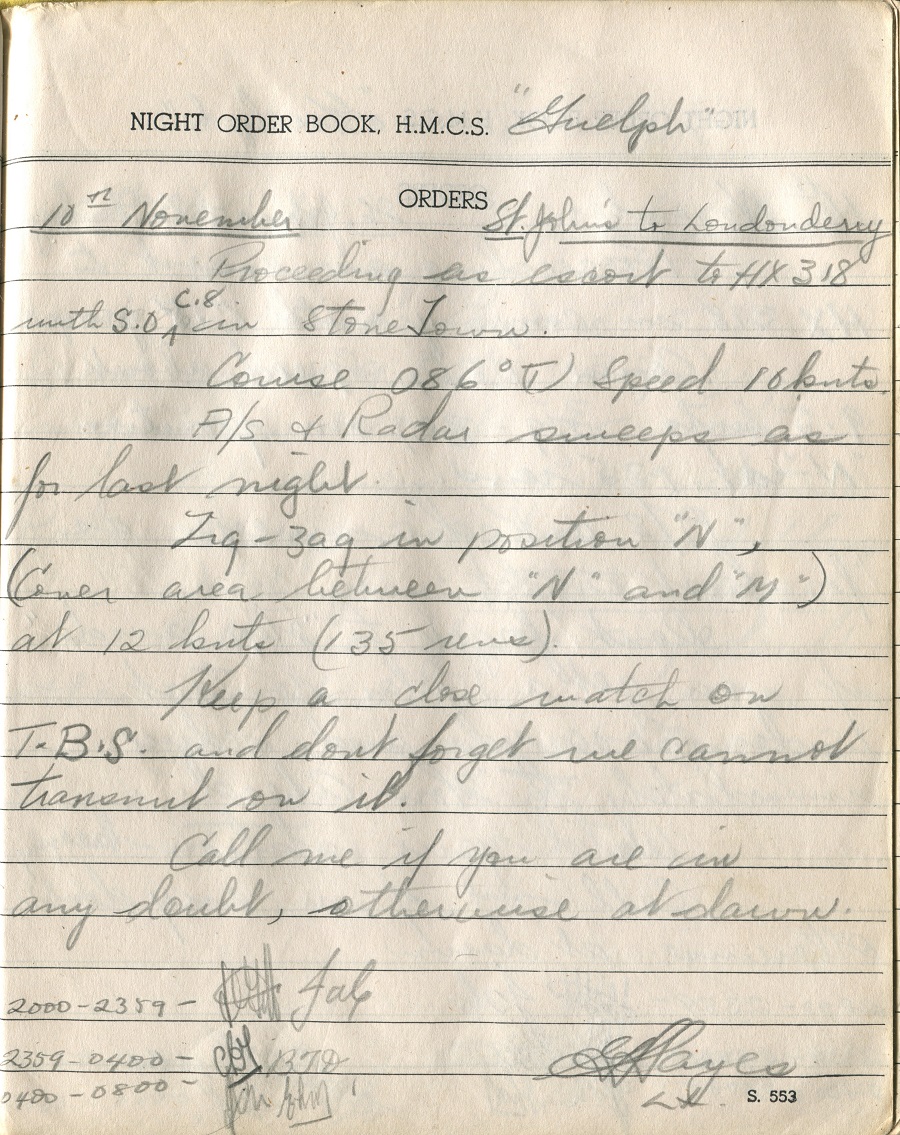 NIGHT ORDER BOOK, H.M.C.S. "Guelph"
ORDERS
10th November St. John's to Londonderry
Proceeding as escort to HX 318
with S.O. C.8 in StoneTown.
Course 086° (T) Speed 10 knts.
A/S & Radar sweeps as
for last night.
Zig-zag in position "N",
(Cover area between "N" and "M")
at 12 knts (135 revs).
Keep a close watch on
T.B.S. and dont forget we cannot
transmit on it.
Call me if you are in
any doubt, otherwise at dawn.
2000-2359-
2359-0400-
Hayes
0400-0800-
Lt.
S. 553